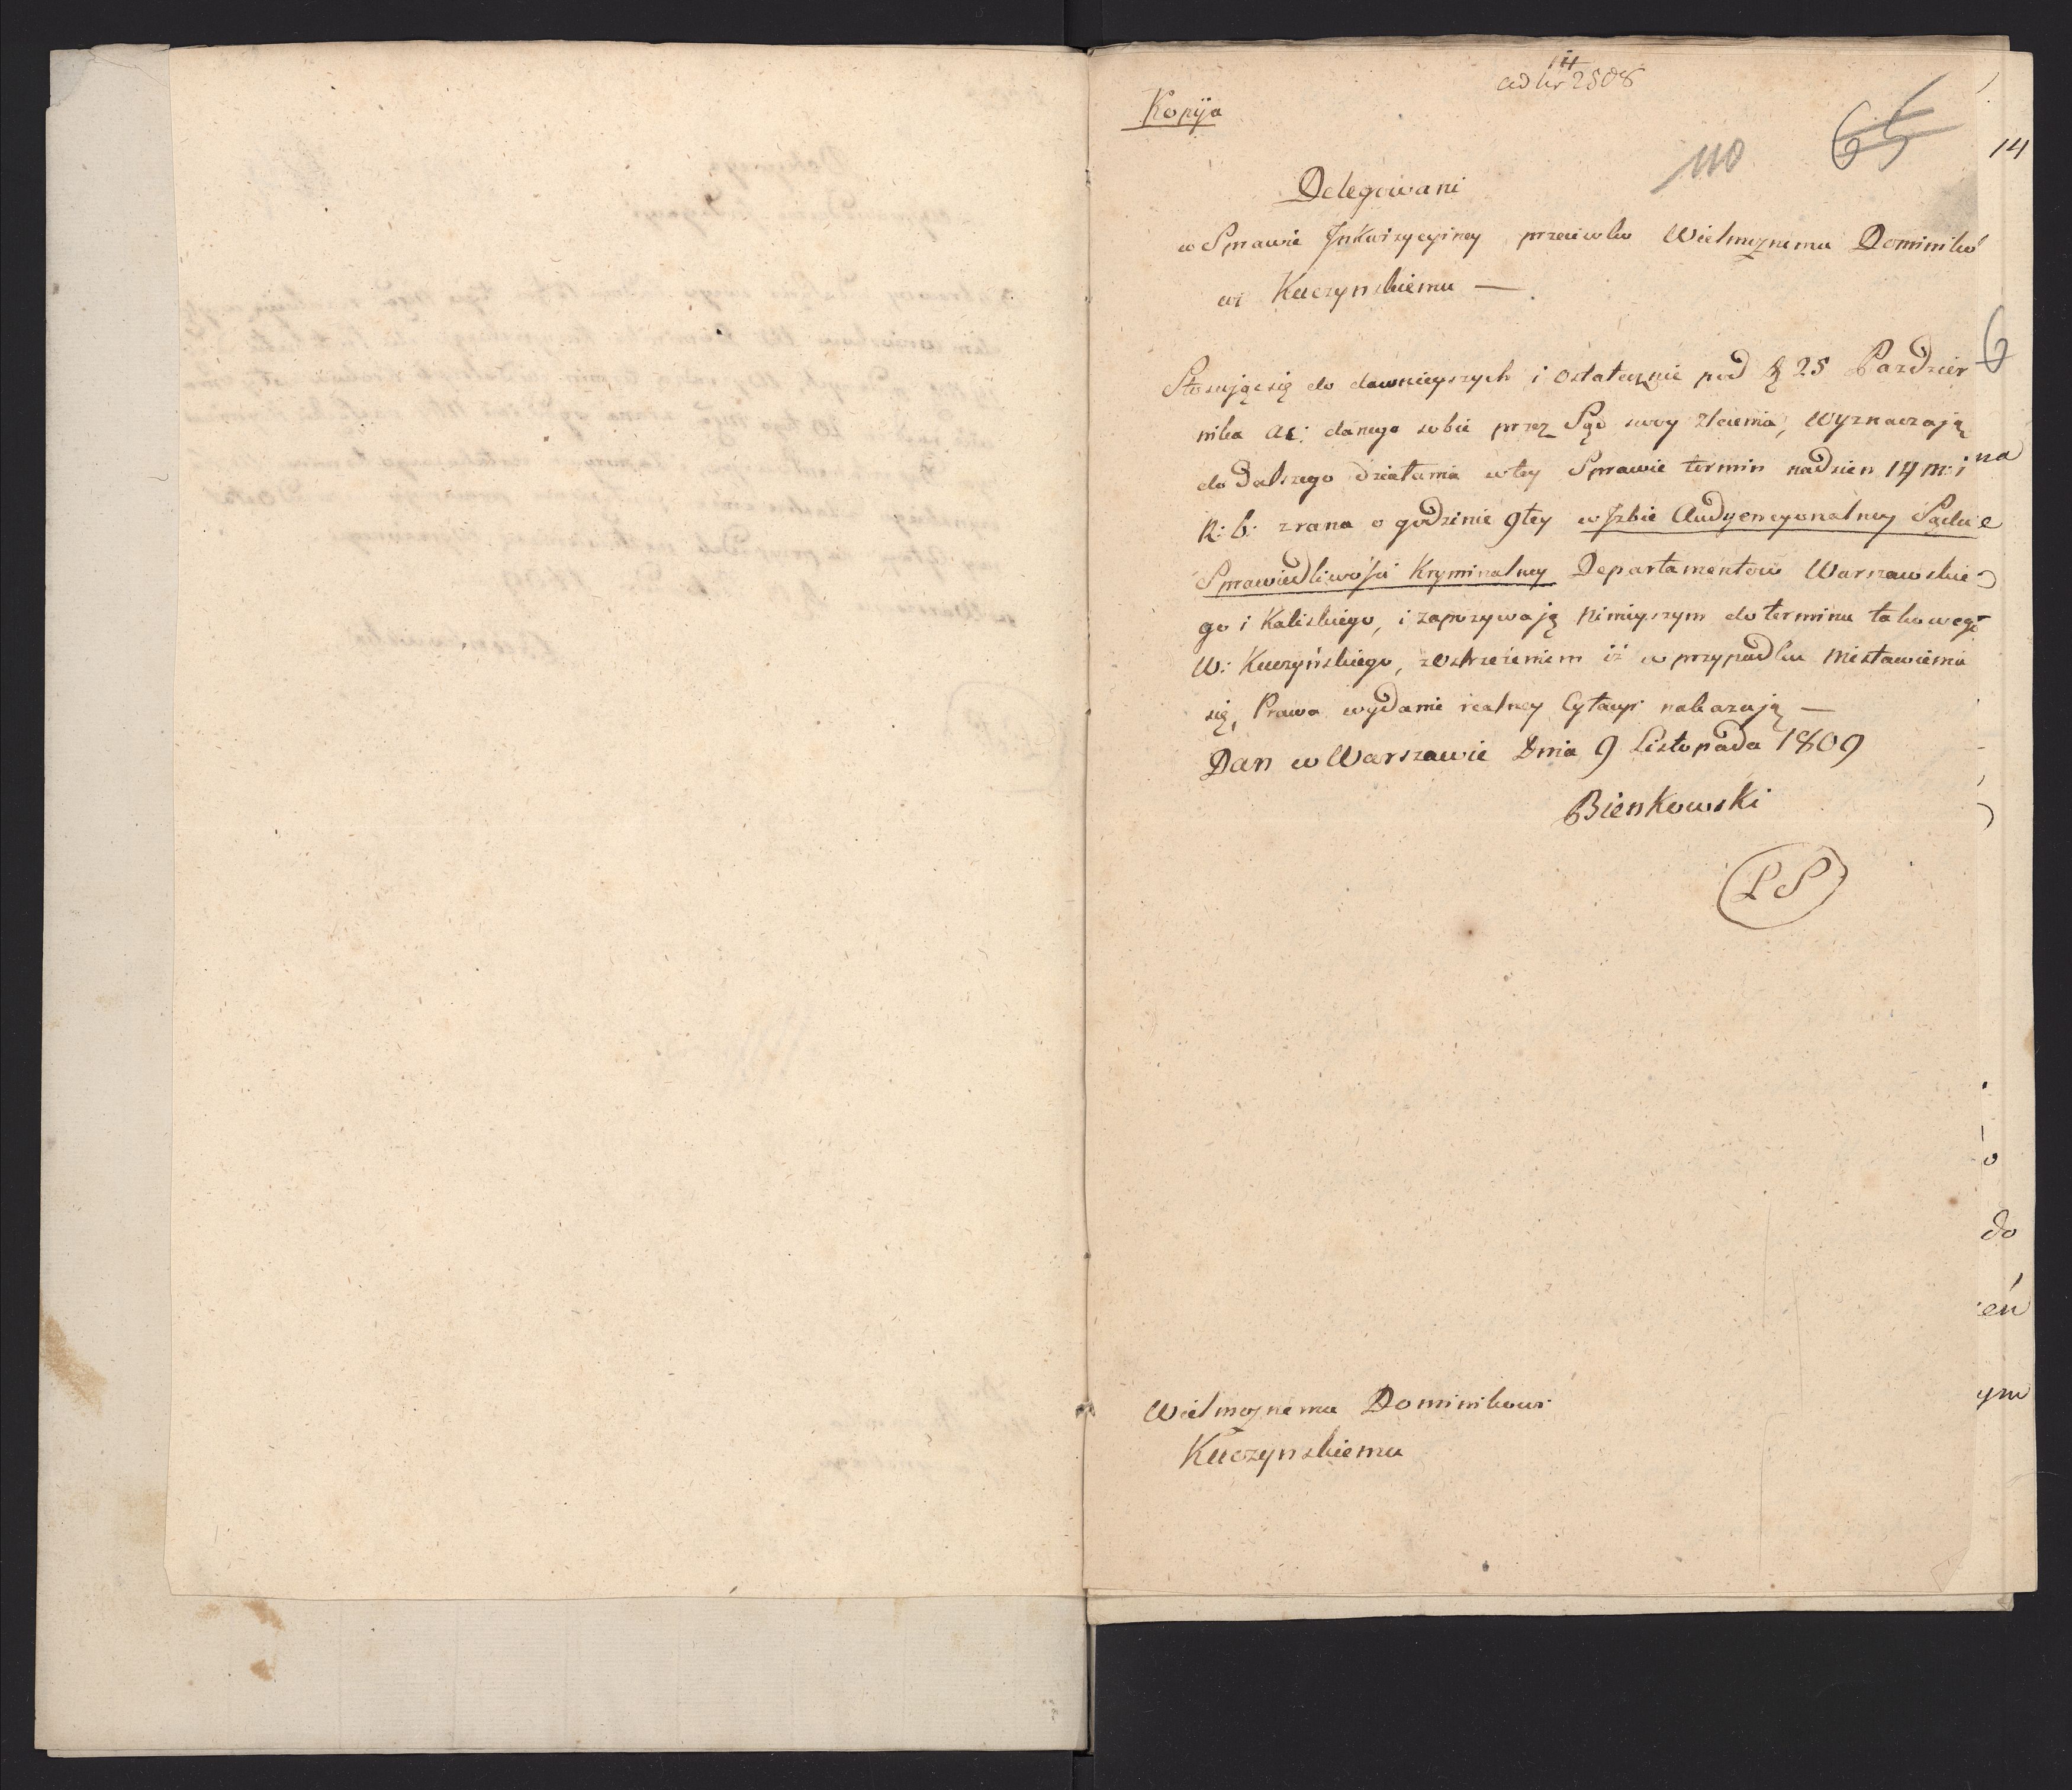 14
ad Nr 2508
Kopija
110
65
14
Delegowani
w Sprawie Inkwizycyiney przeciwko Wielmożnemu Dominiko
wi Kuczynskiemu —
6
Stosując się do dawnieyszych i ostatecznie pod d 25 Pazdzier
nika ac: danego sobie przez Sąd swoy Zlecenia, wyznaczają
do dalszego działania w tey Sprawie termin na dzien 14 m: i
na
R: b: z rana o godzinie 9tey w Izbie Audyencyonalney Sądu
e
Sprawiedliwości Kryminalney Departamentow Warszawskie
go i Kaliskiego, i zapozywają ninieyszym do terminu takowego
W: Kuczyńskiego, z ostrzeżeniem iż w przypadku niestawienia
się, Prawo wydanie realney Cytacyi nakazują —
Dan w Warszawie Dnia 9 Listopada 1809
Bienkowski
LS
o
do
eń
ym
Wielmożnemu Dominikowi
Kuczynskiemu